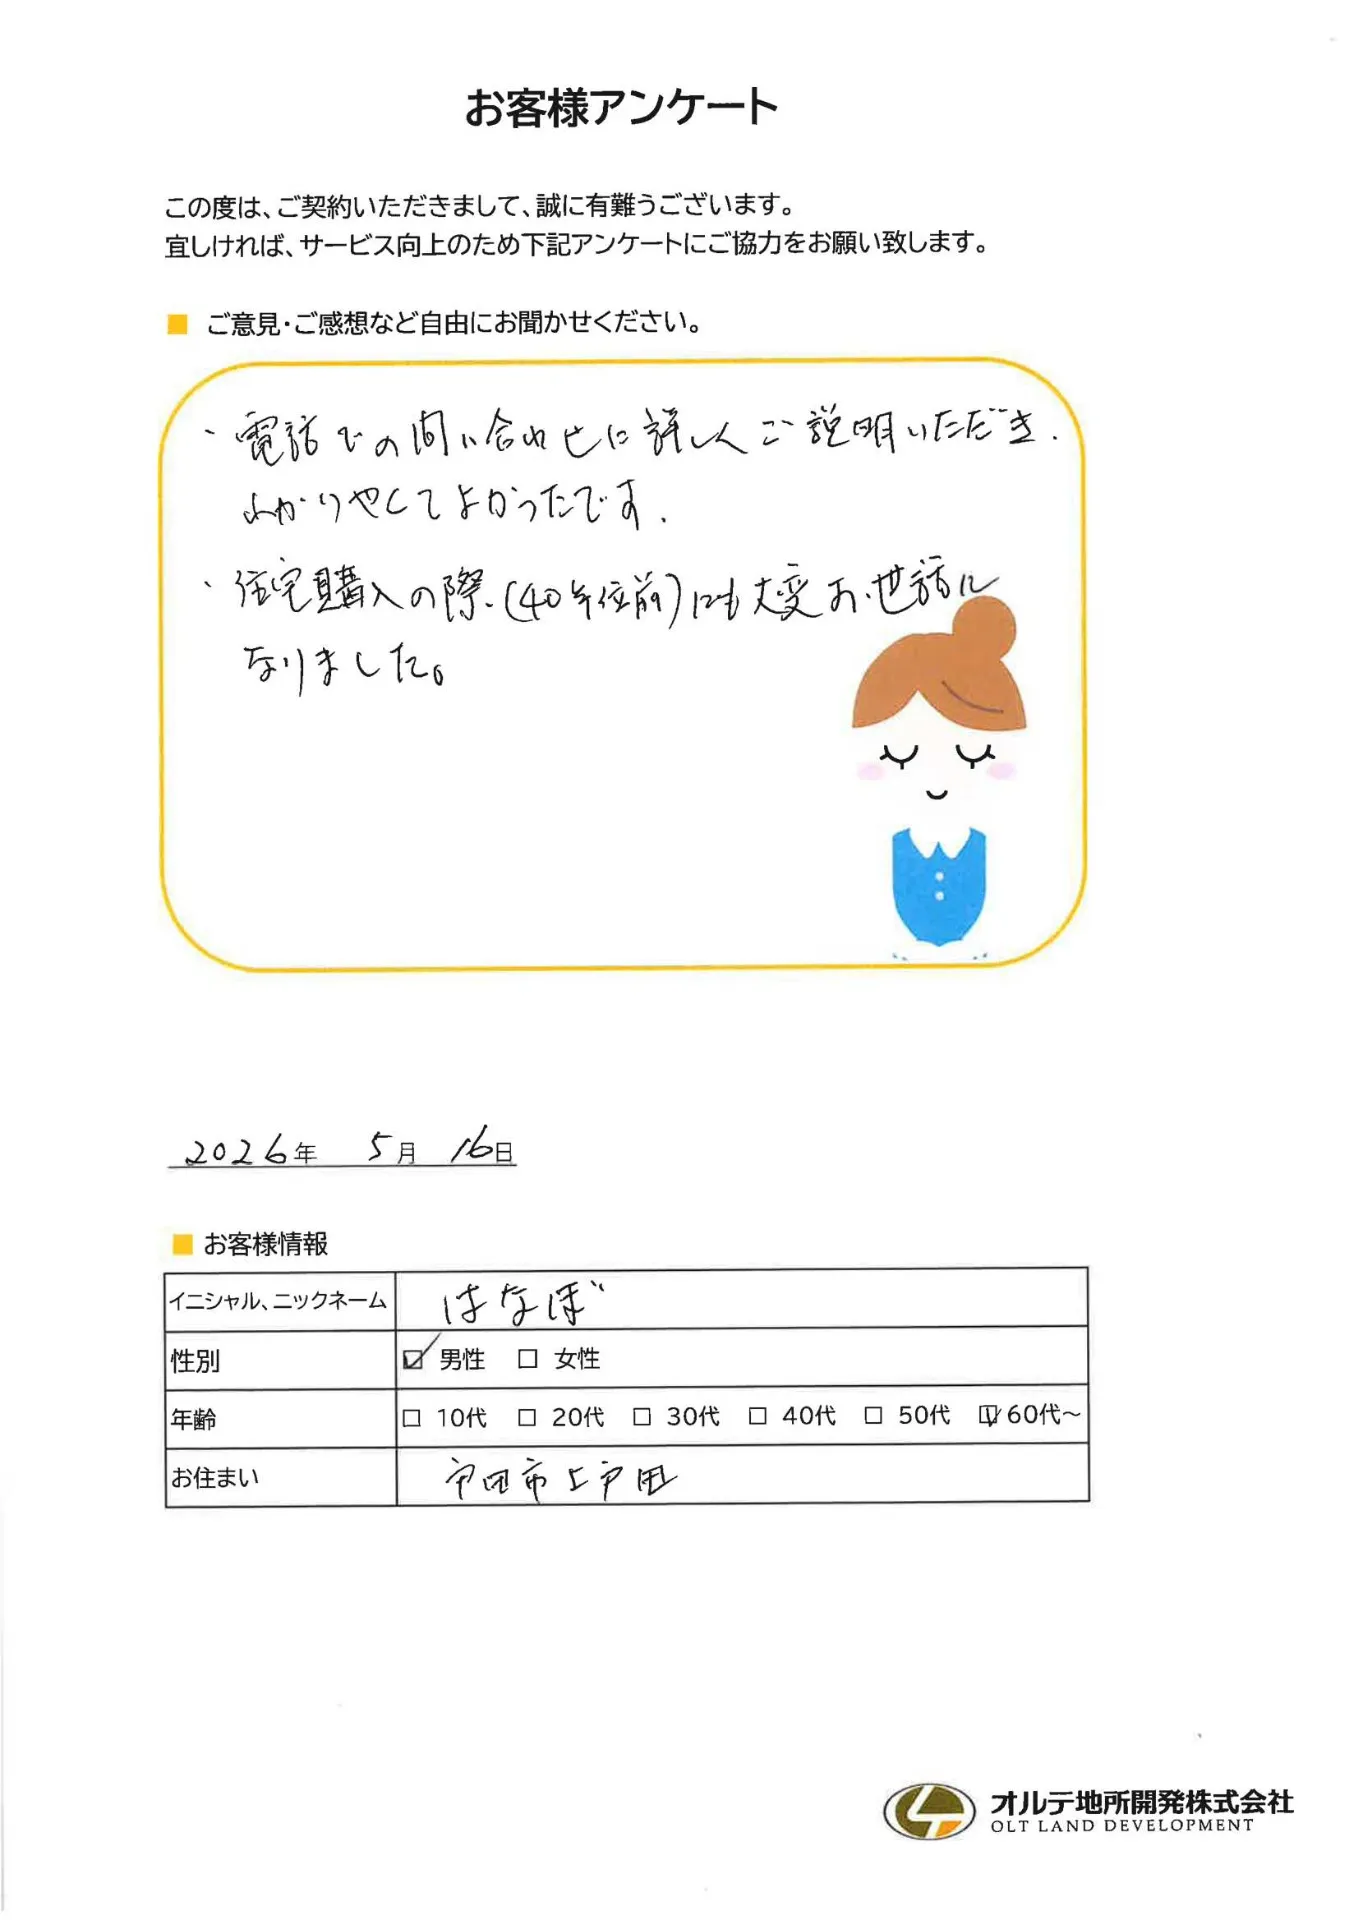 お客様アンケート
この度は、ご契約いただきまして、誠に有難うございます。
宜しければ、サービス向上のため下記アンケートにご協力をお願い致します。
■ ご意見・ご感想など自由にお聞かせください。
・電話での問い合わせに詳しくご説明いただき、
わかりやくてよかったです。
・住宅購入の際、(40年位前)にも大変お世話に
なりました。
2026年 5月 16日
■ お客様情報
イニシャル、ニックネーム はなぼ
性別 ☑ 男性 □ 女性
年齢 □ 10代 □ 20代 □ 30代 □ 40代 □ 50代 ☑ 60代～
お住まい 戸田市上戸田
オルテ地所開発株式会社
OLT LAND DEVELOPMENT